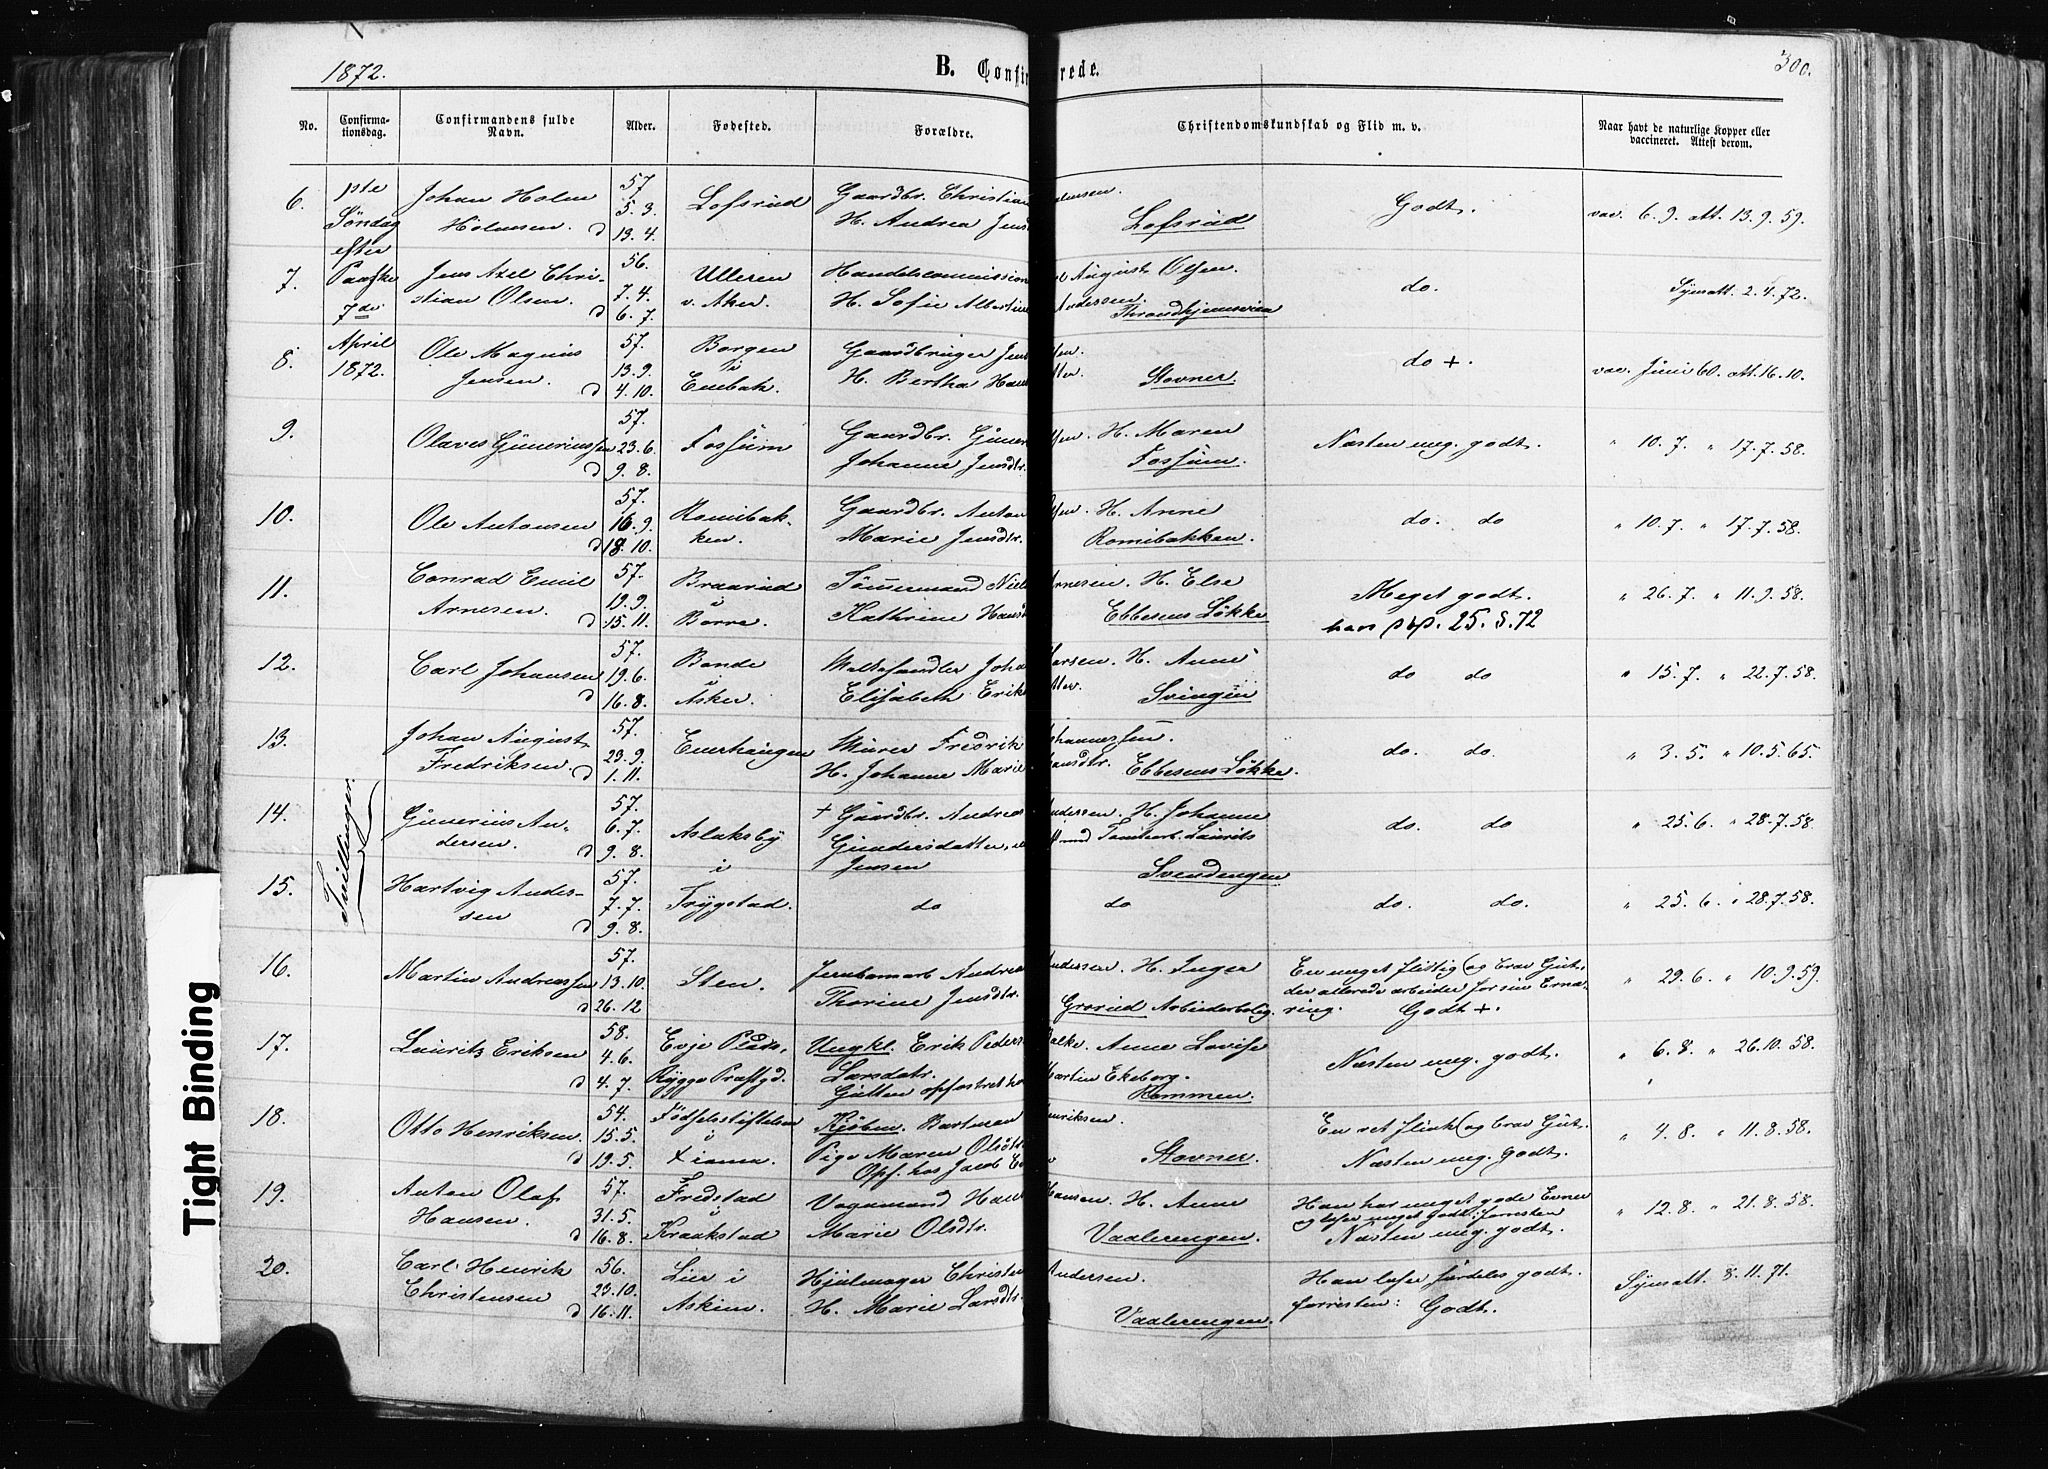 1872.
B. Confir rede.
300.
No.
Confirma-
tionsdag.
Confirmandens fulde
Navn.
Alder.
Fødested.
Forældre.
Christendomskundskab og Flid m. v.
Naar havt de naturlige Kopper eller
vaccineret. Attest derom.
1ste
Søndag
efter
Paaske
7de
April
1872.
6.
Johan Holm
Holmsen. d
57
5. 3.
13. 4.
Lofsrud
Gaardbr. Christian
H. Andrea Jensd
Lofsrud
Godt.
vac. 6. 9. att. 13. 9. 59.
7.
Jens Axel Chri-
stian Olsen. d
56.
7. 4.
6. 7.
Ulleren
v. Aker.
Handelscommission
August Olsen.
H. Sofie Albertine Andersen.
Throndhjemsveien
do.
Synsatt. 2. 4. 72.
8.
Ole Magnus
Jensen. d
57.
13. 9.
4. 10.
Borgen
i
Enebak.
Gaardbruger Jens
H. Bertha Hans
Stovner.
do +.
vac. Juni 60. att. 16. 10.
9.
Olaves Gunerius sen
d
57.
23. 6.
9. 8.
Fossum
Gaardbr. Guner sen. H. Maren
Johanne Jensdtr. Fossum.
Næsten meg. godt.
" 10. 7. " 17. 7. 58.
10.
Ole Antonsen
d
57.
16. 9.
18. 10.
Romibak-
ken.
Gaardbr. Anton sen. H. Anne
Marie Jensdtr. Romibakken.
do. do
" 10. 7. " 17. 7. 58.
11.
Conrad Emil
Arnesen. d
57.
19. 9.
15. 11.
Braarud
i
Borre.
Tömmermand Niel Arnesen. H. Else
Kathrine Hansd Ebbesens Løkke
Meget godt.
" 26. 7. " 11. 9. 58.
12.
Carl Johansen
d
57.
19. 6.
16. 8.
Bonde
i
Asker.
Joha Larsen. H. Anne
Elisabeth Erik
Svingen
do do
" 15. 7. " 22. 7. 58.
13.
Johan August
Fredriksen. d
57.
23. 9.
1. 11.
Enerhaugen
Murer Fredrik ohannessen.
H. Johanne Marie ansdtr. Ebbesens Løkke.
do. do.
" 3. 5. " 10. 5. 65.
Tvillinger.
14.
Gunerius An-
dersen. d
57.
6. 7.
9. 8.
Aslaksby
i
Trygstad.
+ Gaardbr. Andreas Andersen. H. Johanne
Gundersdatter, Laurits
Jensen
Svendengen
do. do
" 25. 6. " 28. 7. 58.
15.
Hartvig Ander-
sen d
57.
7. 7.
9. 8.
do do
do. do.
" 25. 6. " 28. 7. 58.
16.
Martin Andreassen
d
57.
13. 10.
26. 12
Sten.
Jernbanearb Andrea Andersen. H. Inger
Thorine Jensdtr. Grorud Arbeiderbolig.
En meget flittig og brav Gut,
der allerede arbeider for sin Ernæ-
ring. Godt +.
" 29. 6. " 10. 9. 59.
17.
Lauritz Eriksen
d
58.
4. 6.
4. 7.
Evje Plads,
Rygge Præstgd.
Ungkl. Erik Peders Balke. Anne Lovise
Larsdatr.
Gutten opfostret ho Martin Ekeberg.
Rommen.
Næsten meg. godt.
" 6. 8. " 26. 10. 58.
18.
Otto Henriksen.
d
54.
15. 5.
19. 5.
Fødselsstiftelsen
i
Xiania.
Henriksen.
Pige Maren Olsdtr
Opf. hos Jacob
Stovner.
En ret flink og brav Gut.
Næsten meg. godt.
" 4. 8. " 11. 8. 58.
19.
Anton Olaf
Hansen. d
57.
31. 5.
16. 8.
Fredstad
i
Kraakstad
Vognmand Hans Hansen. H. Anne
Marie Olsdtr. Vaalerengen.
Han har meget gode Evner
og læser meget godt; forresten
Næsten meg. godt.
" 12. 8. " 21. 8. 58.
20.
Carl Henrik
Christensen
d
56.
23. 10.
16. 11.
Lier i
Askim.
Hjulmager Christen Andersen.
H. Marie Larsdtr.
Vaalerengen.
Han læser særdeles godt.
forresten: Godt.
Synsatt. 8. 11. 71.
Tight Binding